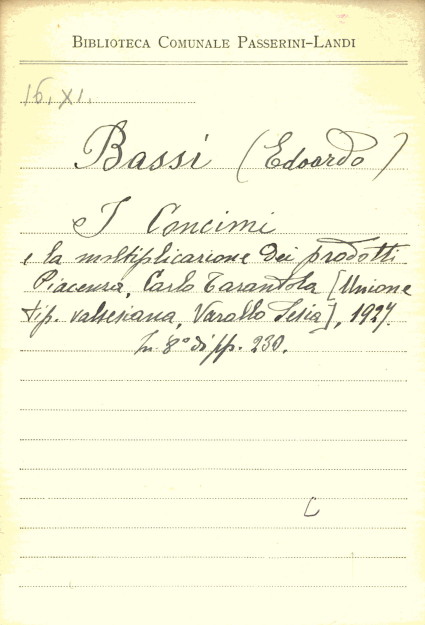 BIBLIOTECA COMUNALE PASSERINI-LANDI
16. XI.
Bassi (Edoardo)
I Concimi
e la moltiplicazione dei prodotti
Piacenza, Carlo Tarantola [Unione
tip. valsesiana, Varallo Sesia], 1927.
In 8° di pp. 230.
C